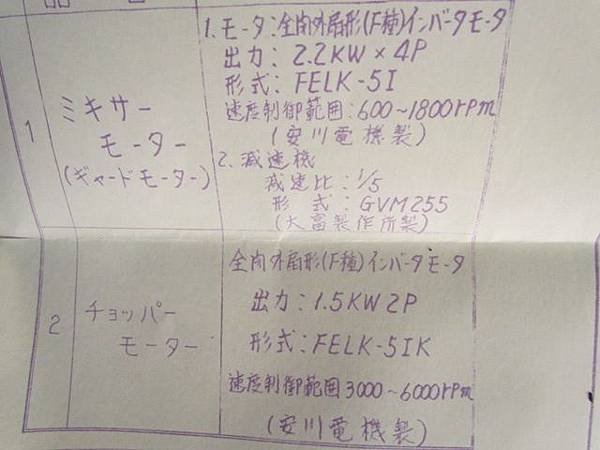 1
ミキサー
モーター
(ギャードモーター)
1.モータ:全閉外扇形(F種)インバータモータ
出力:2.2KW×4P
形式:FELK-5I
速度制御範囲:600~1800rpm
(安川電機製)
2.減速機
減速比:1/5
形式:GVM255
(大富製作所製)
2
チョッパー
モーター
全閉外扇形(F種)インバータモータ
出力:1.5KW2P
形式:FELK-5IK
速度制御範囲3000~6000rpm
(安川電機製)